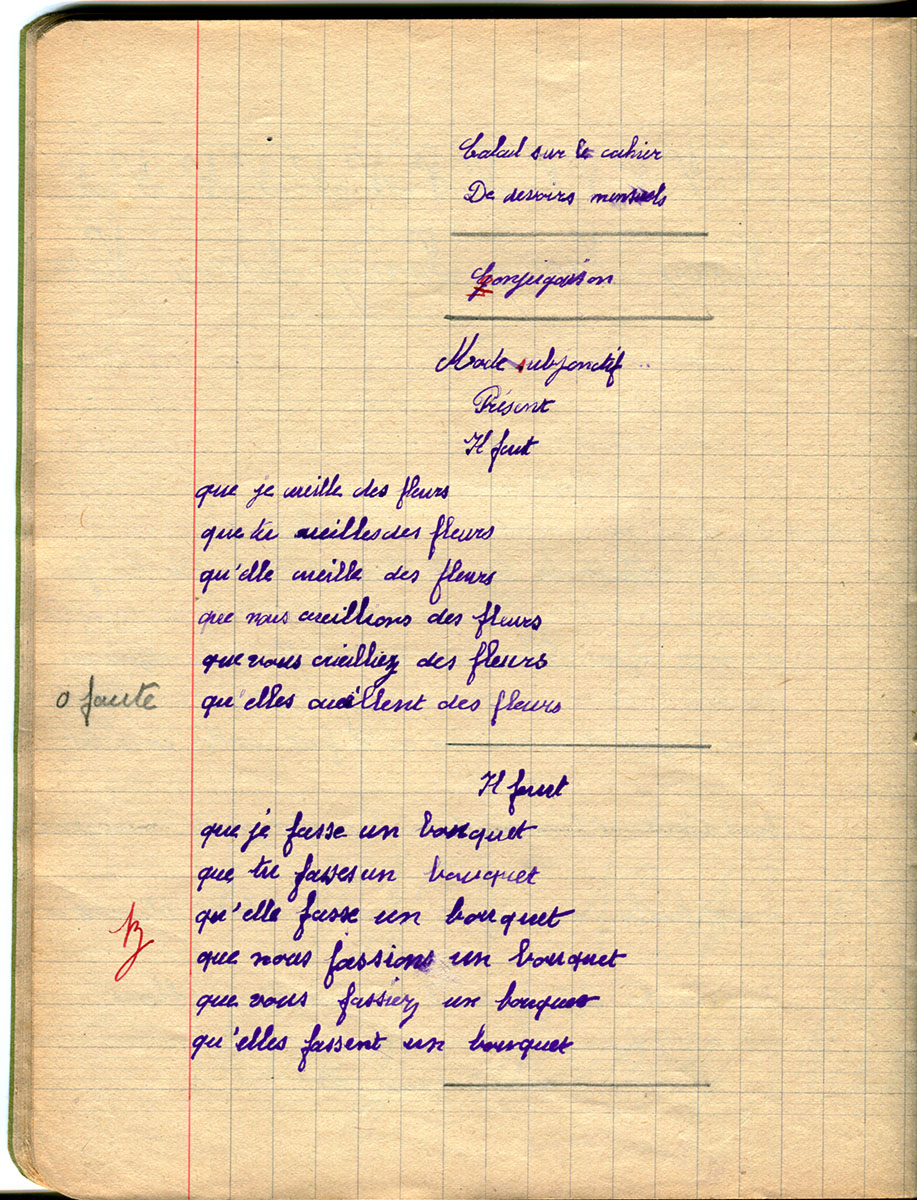 Calcul sur le cahier
De devoirs mensuels
Conjugaison
Mode subjonctif
Présent
Il faut
que je cueille des fleurs
que tu cueilles des fleurs
qu'elle cueille des fleurs
que nous cueillions des fleurs
que vous cueilliez des fleurs
0 faute qu'elles cueillent des fleurs
Il faut
que je fasse un bouquet
que tu fasses un bouquet
qu'elle fasse un bouquet
que nous fassions un bouquet
que vous fassiez un bouquet
qu'elles fassent un bouquet